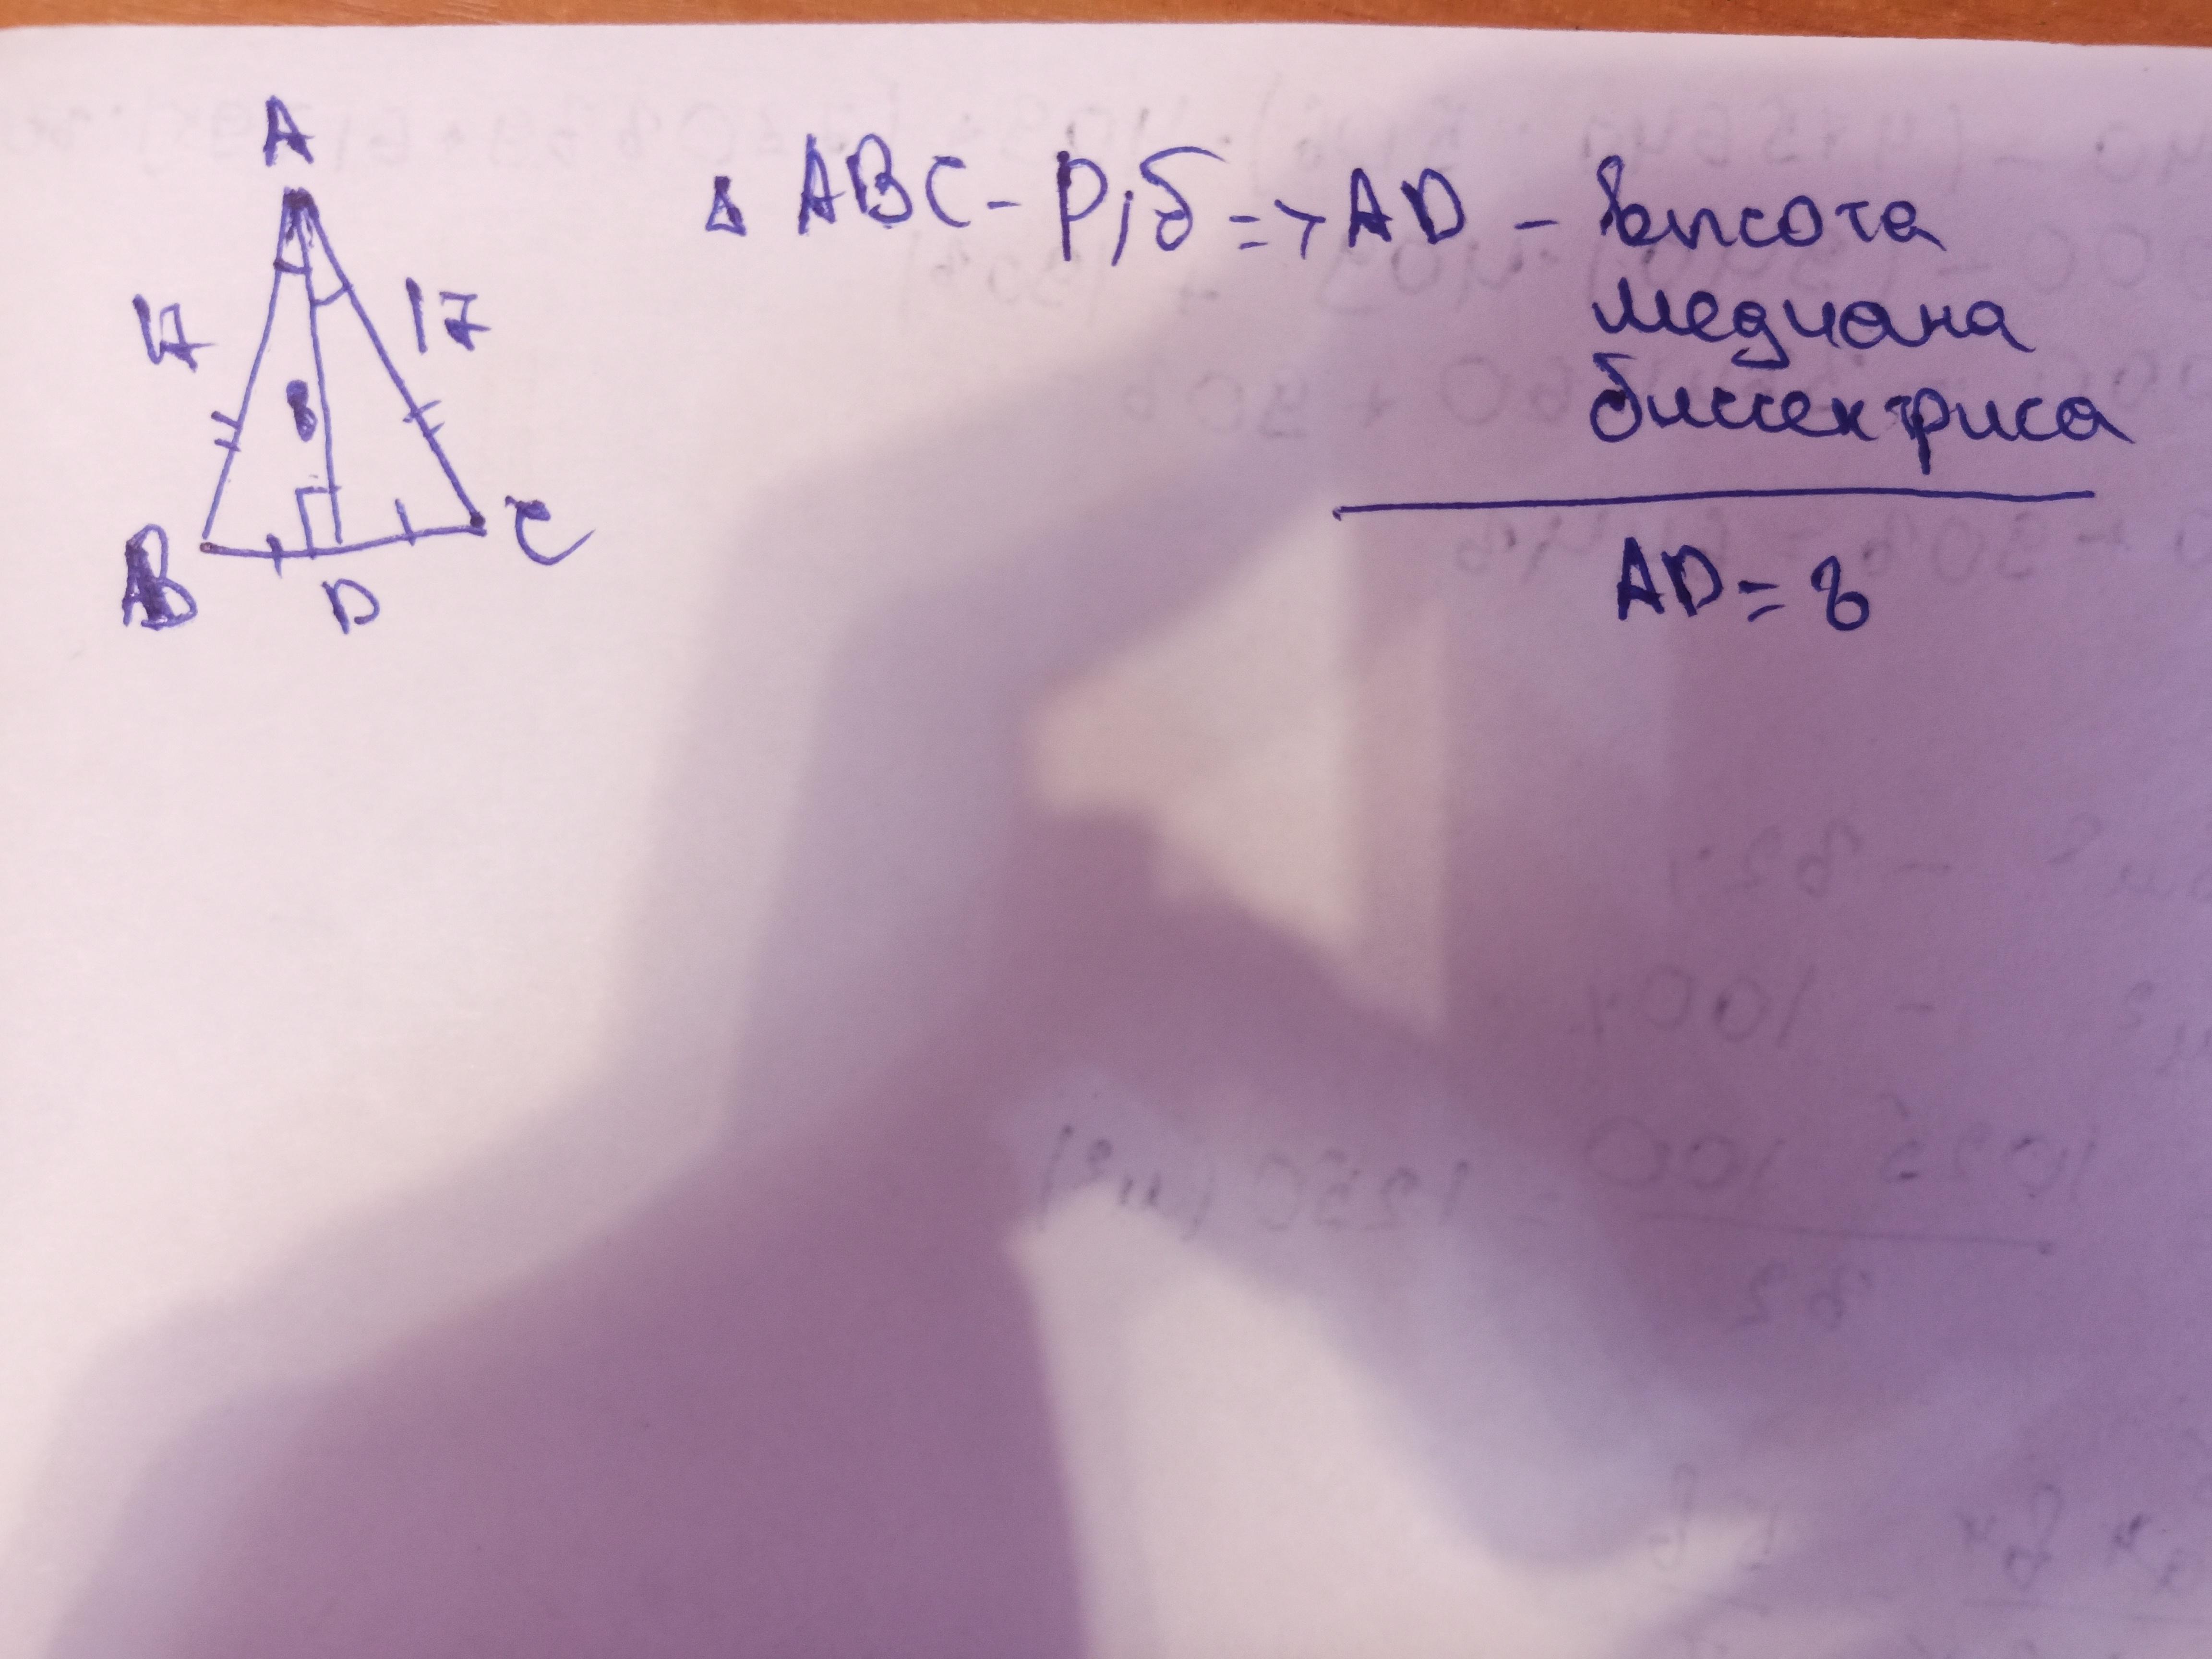 A
17
17
8
B
D
C
Δ ABC - р/б => AD - высота
медиана
биссектриса
AD = 8